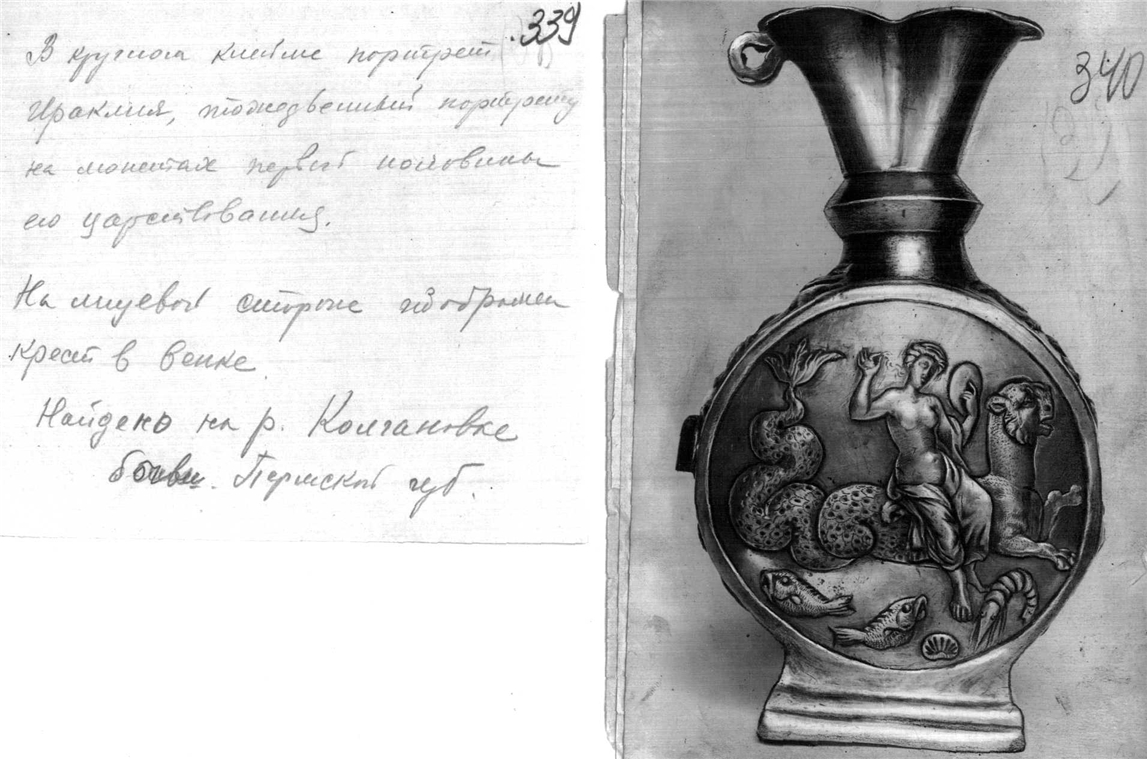 339
В круглом клейме портрет
Ираклия, тождественный портрету
на монетах первой половины
его царствования.
На лицевой стороне изображен
крест в венке.
Найдено на р. Колчановке
бывш. Пермской губ.
340